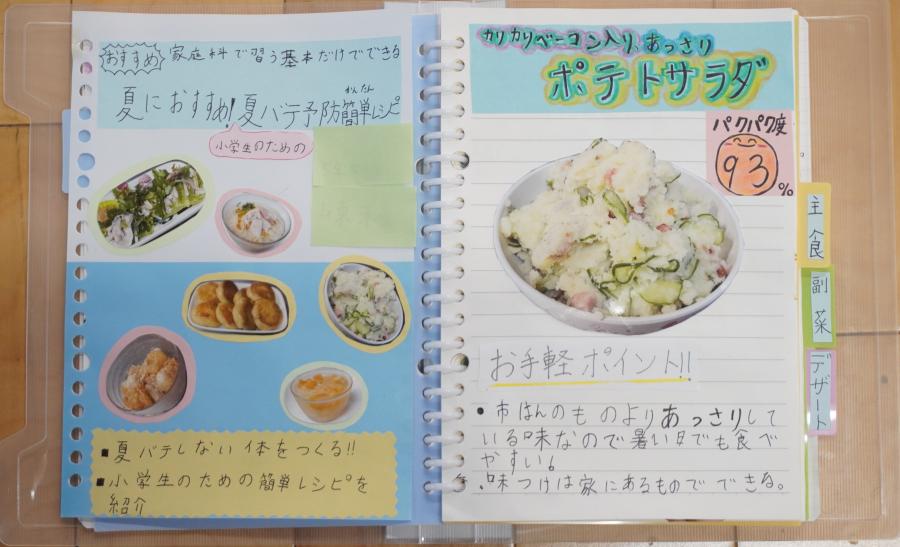 おすすめ
家庭科で習う基本だけでできる
夏におすすめ!夏バテ予防簡単レシピ
かんたん
小学生のための
夏バテしない体をつくる!!
小学生のための簡単レシピを
紹介
カリカリベーコン入り、あっさり
ポテトサラダ
パクパク度
93%
お手軽ポイント!!
・市はんのものよりあっさりして
いる味なので暑い日でも食べ
やすい。
・味つけは家にあるものでできる。
主食
副菜
デザート